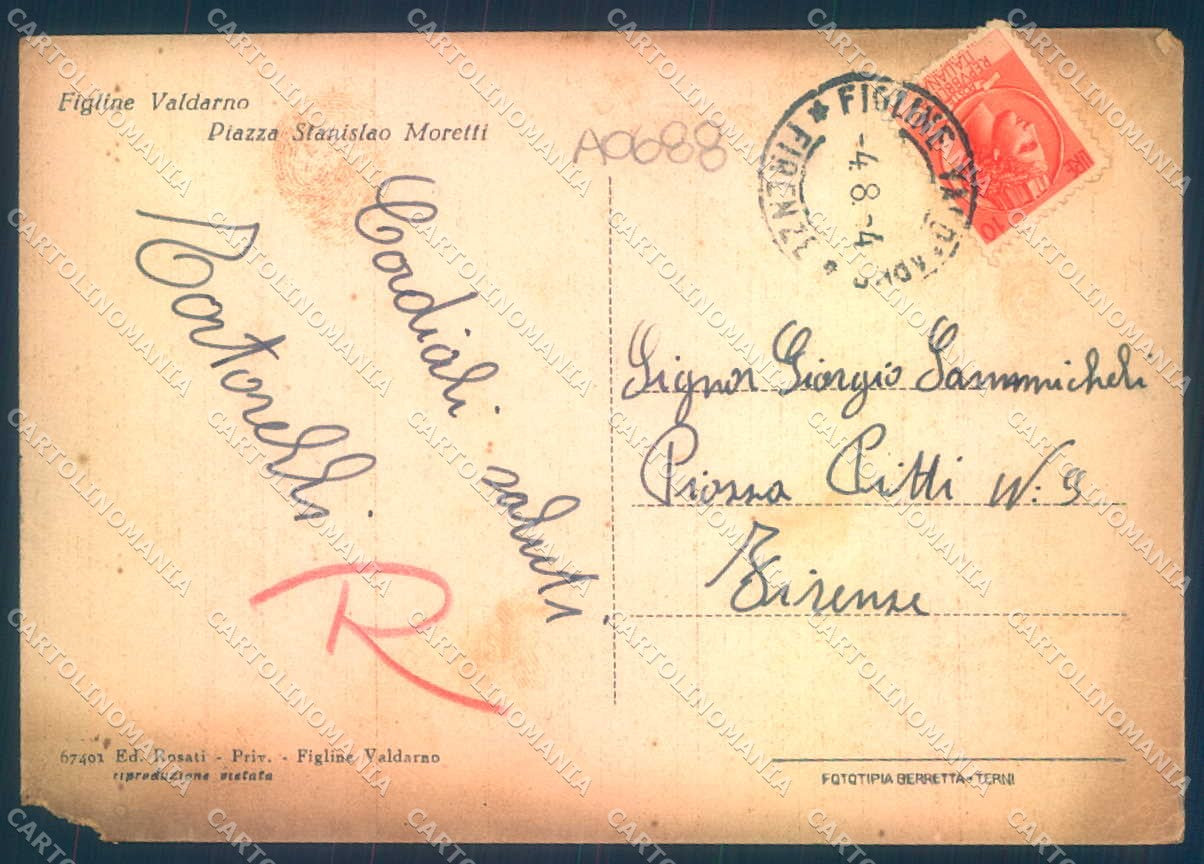 Figline Valdarno
Piazza Stanislao Moretti
A0688
FIGLINE VALDARNO
* FIRENZE *
-4.8-4
REPUBBLICA
ITALIANA
POSTE
LIRE
10
Cordiali saluti.
Martorelli.
R
Signor Giorgio Sammicheli
Piazza Pitti N. 9
Firenze
67401 Ed. Rosati - Priv. - Figline Valdarno
riproduzione vietata
FOTOTIPIA BERRETTA - TERNI
CARTOLINOMANIA